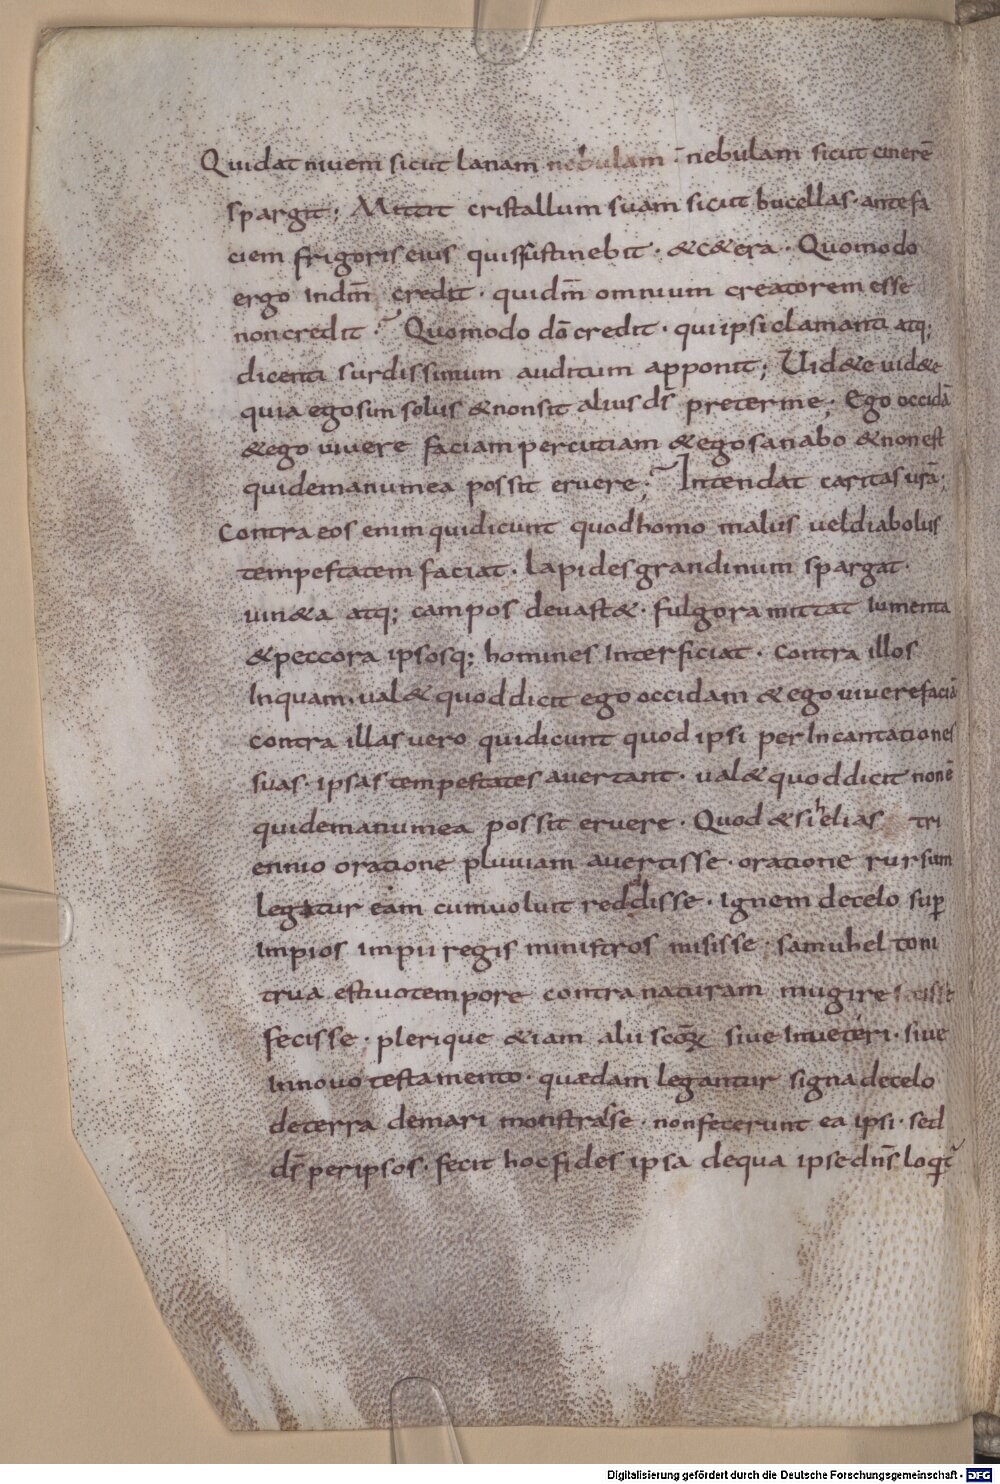 Qui dat nivem sicut lanam nebulam · nebulam sicut cinerē
spargit; Mittit cristallum suam sicut bucellas · ante fa
ciem frigoris eius quis sustinebit · & c&era · Quomodo
ergo in dm̄ credit · qui dm̄ omnium creatorem esse
non credit · Quomodo dō credit · qui ipsi clamanti atq;
dicenti surdissimum auditum apponit; Uid&e uid&e
quia ego sim solus & non sit alius ds̄ preter me; Ego occidā
& ego uiuere faciam percutiam & ego sanabo & non est
qui de manu mea possit eruere; Intendat caritas urā;
Contra eos enim qui dicunt quod homo malus uel diabolus
tempestatem faciat · lapides grandinum spargat ·
uin&a atq; campos deuast& · fulgora mittat iumenta
& peccora ipsosq; homines interficiat · contra illos
inquam · ual& quod dicit ego occidam & ego uiuere faciā
contra illas uero qui dicunt quod ipsi per incantationes
suas · ipsas tempestates auertant · ual& quod dicit non ē
qui de manu mea possit eruere · Quod & si helias tri
ennio oratione pluuiam auertisse · oratione rursum
legatur eam cum uoluit reddisse · ignem de celo sup̄
impios impii regis ministros misisse · samuhel toni
trua estiuo tempore contra naturam mugire
fecisse · plerique &iam alii scōꝝ siue in ueteri · siue
in nouo testamento · quædam legantur signa de celo
de terra de mari monstrasse · non fecerunt ea ipsi · sed
ds̄ per ipsos · fecit hoc fides ipsa de qua ipse dns̄ loq̄t
Digitalisierung gefördert durch die Deutsche Forschungsgemeinschaft - DFG